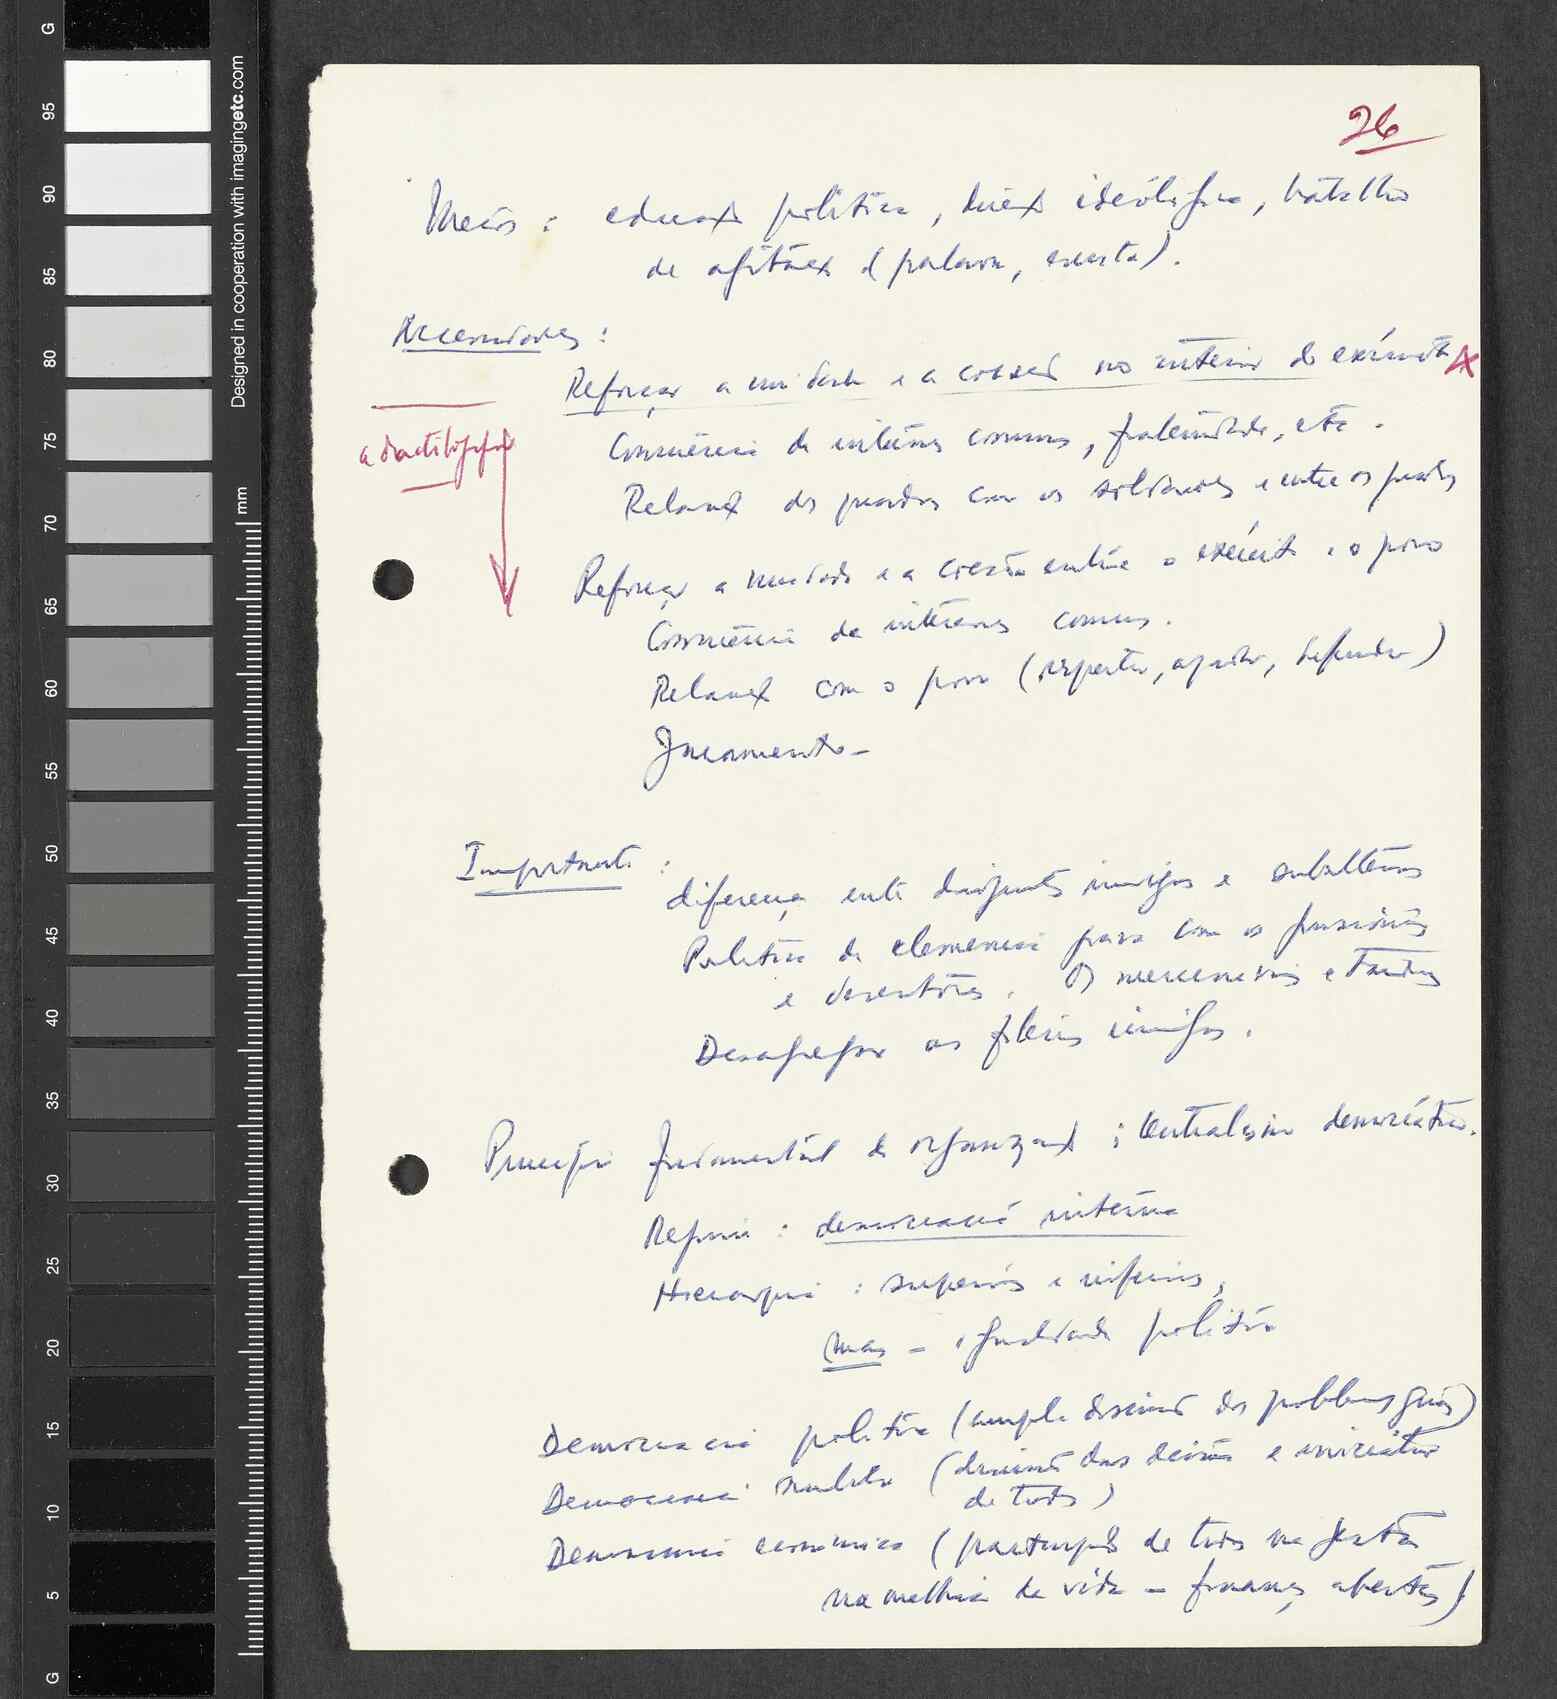 26
Meios: educação política, direcção ideológica, trabalho
de agitação (palavra, escrita).
Necessidades:
Reforçar a unidade e a coesão no interior do exército
a dactilografar
Consciência de interesses comuns, fraternidade, etc.
Relações dos quadros com os soldados e entre os quadros
Reforçar a unidade e a coesão entre o exército e o povo
Consciência de interesses comuns.
Relações com o povo (respeitar, ajudar, defender)
Juramento—
Importante:
diferença entre dirigentes inimigos e subalternos
Política de clemência para com os prisioneiros
e desertores. Os mercenários e
Desagregar as fileiras inimigas.
Princípio fundamental de organização: Centralismo democrático.
Regime: democracia interna
Hierarquia: superiores e inferiores,
mas — igualdade política
Democracia política (ampla discussão dos problemas gerais)
Democracia militar (discussão das decisões e iniciativa
de todos)
Democracia económica (participação de todos na gestão
na melhoria da vida — finanças abertas)
Designed in cooperation with imagingetc.com
mm
G
95
90
85
80
75
70
65
60
55
50
45
40
35
30
25
20
15
10
5
G